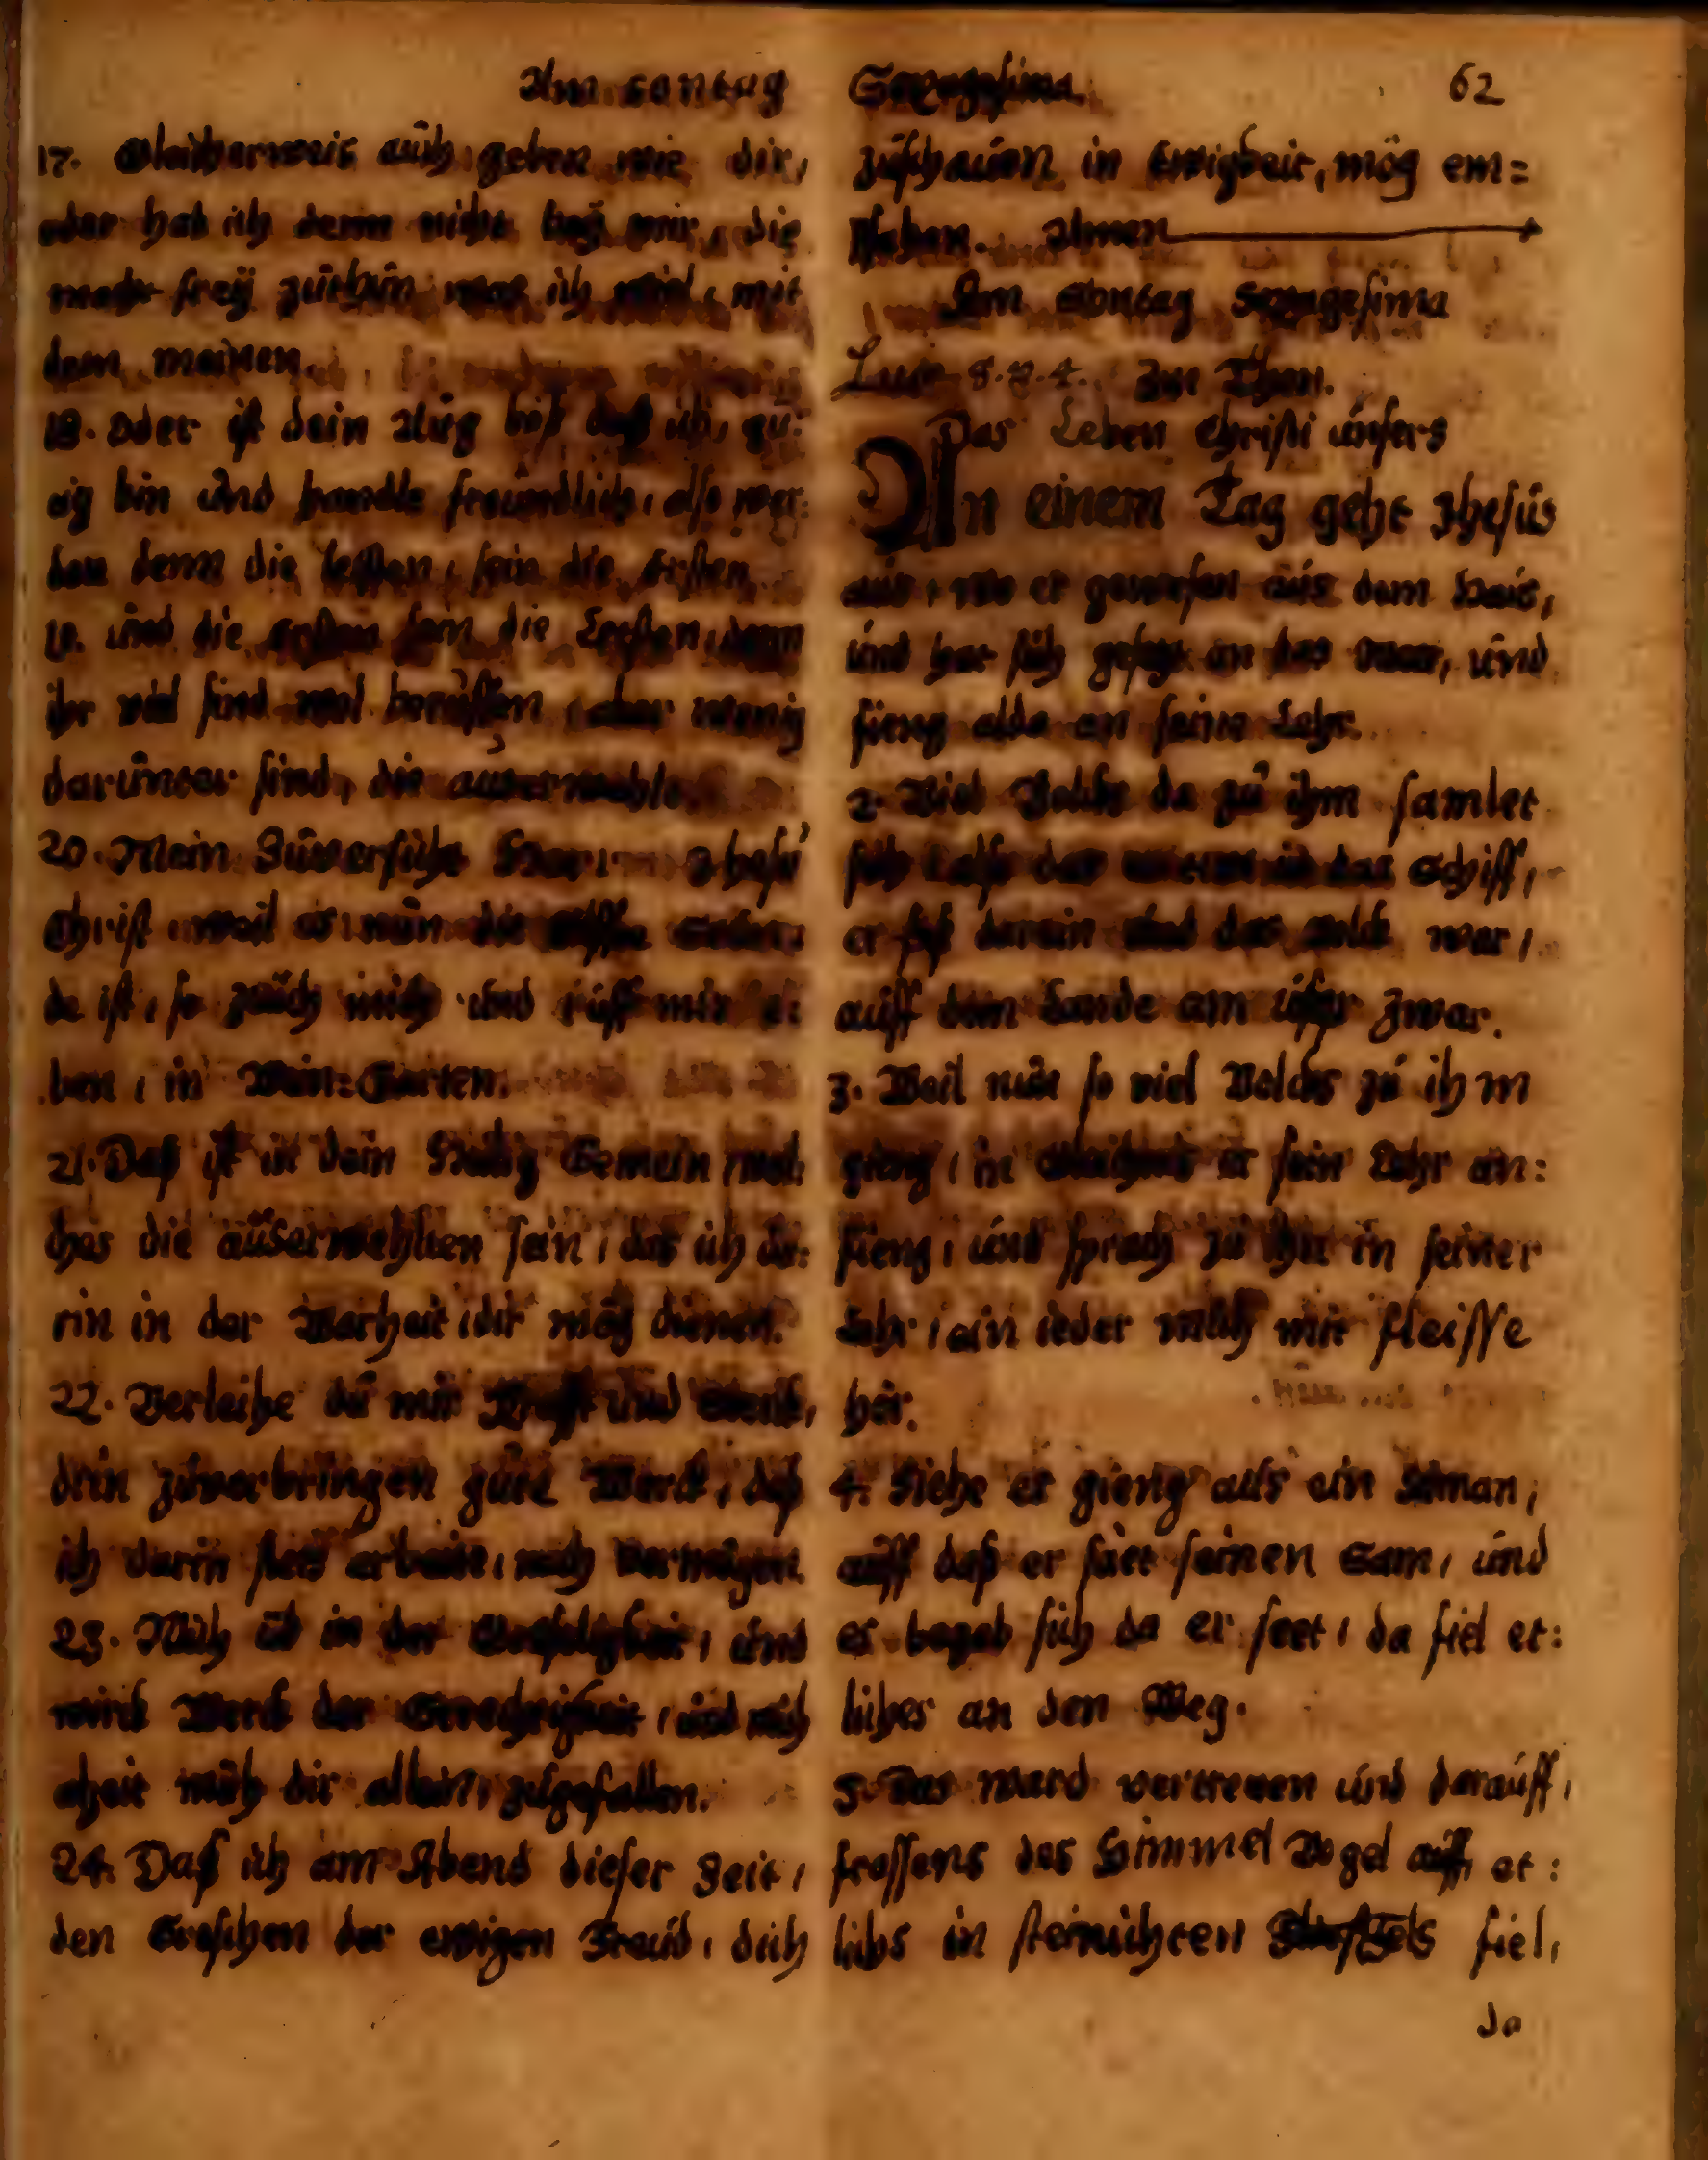 Am Sontag
17. Gleicherweis auch geben wie dir,
oder hab ich denn nicht beÿ mir, die
macht freÿ zuthun was ich wil, mit
dem meinen.
18. Oder ist dein Aug böß daß ich, gü:
tig bin und handle freundlich, also wer:
den denn die letsten, sein die ersten
19. und die ersten sein die Letsten, denn
ihr viel sind wol beruffen, aber wenig
darunter sind, die auserwehlt.
20. Mein Zuversicht Herr Jhesu
Christ, weil es nun die
da ist, so zeüch mich und rüff mir e:
ben, in Wein=Garten.
21. Daß ist in dein Heilig Gemein, wel:
ches die auserwehlten sein, das ich da:
rin in der Warheit, dir mög dienen.
22. Verleihe du mir Krafft und Sterck,
drin zuverbringen gute Werck, daß
ich darin stets arbeite, nach vermögen.
23. Mich üb in der, und
wirck Werck der Gerechtigkeit, und mich
mich dir allein, zugefallen.
24. Daß ich am Abend dieser Zeit,
den Groschen der ewigen Freud, dich
Sexagesima. 62
zuschauen in Ewigkeit, mög em=
pfahen. Amen
Am Sontag Sexagesima
Luce 8. v. 4. Im Thon.
Das Leben Christi unsers
An einem Tag geht Jhesus
aus, wo er gewesen aus dem Haus,
und hat sich gesetzt an das Meer, und
fieng alda an seine Lehr.
2. Viel Volcks da zu ihm samlet
sich, also das in das Schiff,
er saß darein und das Volck war,
auff dem Lande am üfer zwar.
3. Weil nun so viel Volcks zu ihm
gieng, in Gleichnis er sein Lehr an:
fieng, und sprach zu ihn in seiner
Lehr, ein ieder mich mit fleisse
hör.
4. Siehe es gieng aus ein Säman,
auff daß er säet seinen Sam, und
es begab sich da er seet, da fiel et:
liches an den Weg.
5. Das ward vertreten und darauff,
frassens des Himmel Vogel auff, et:
lichs in steinichten fiel,
da